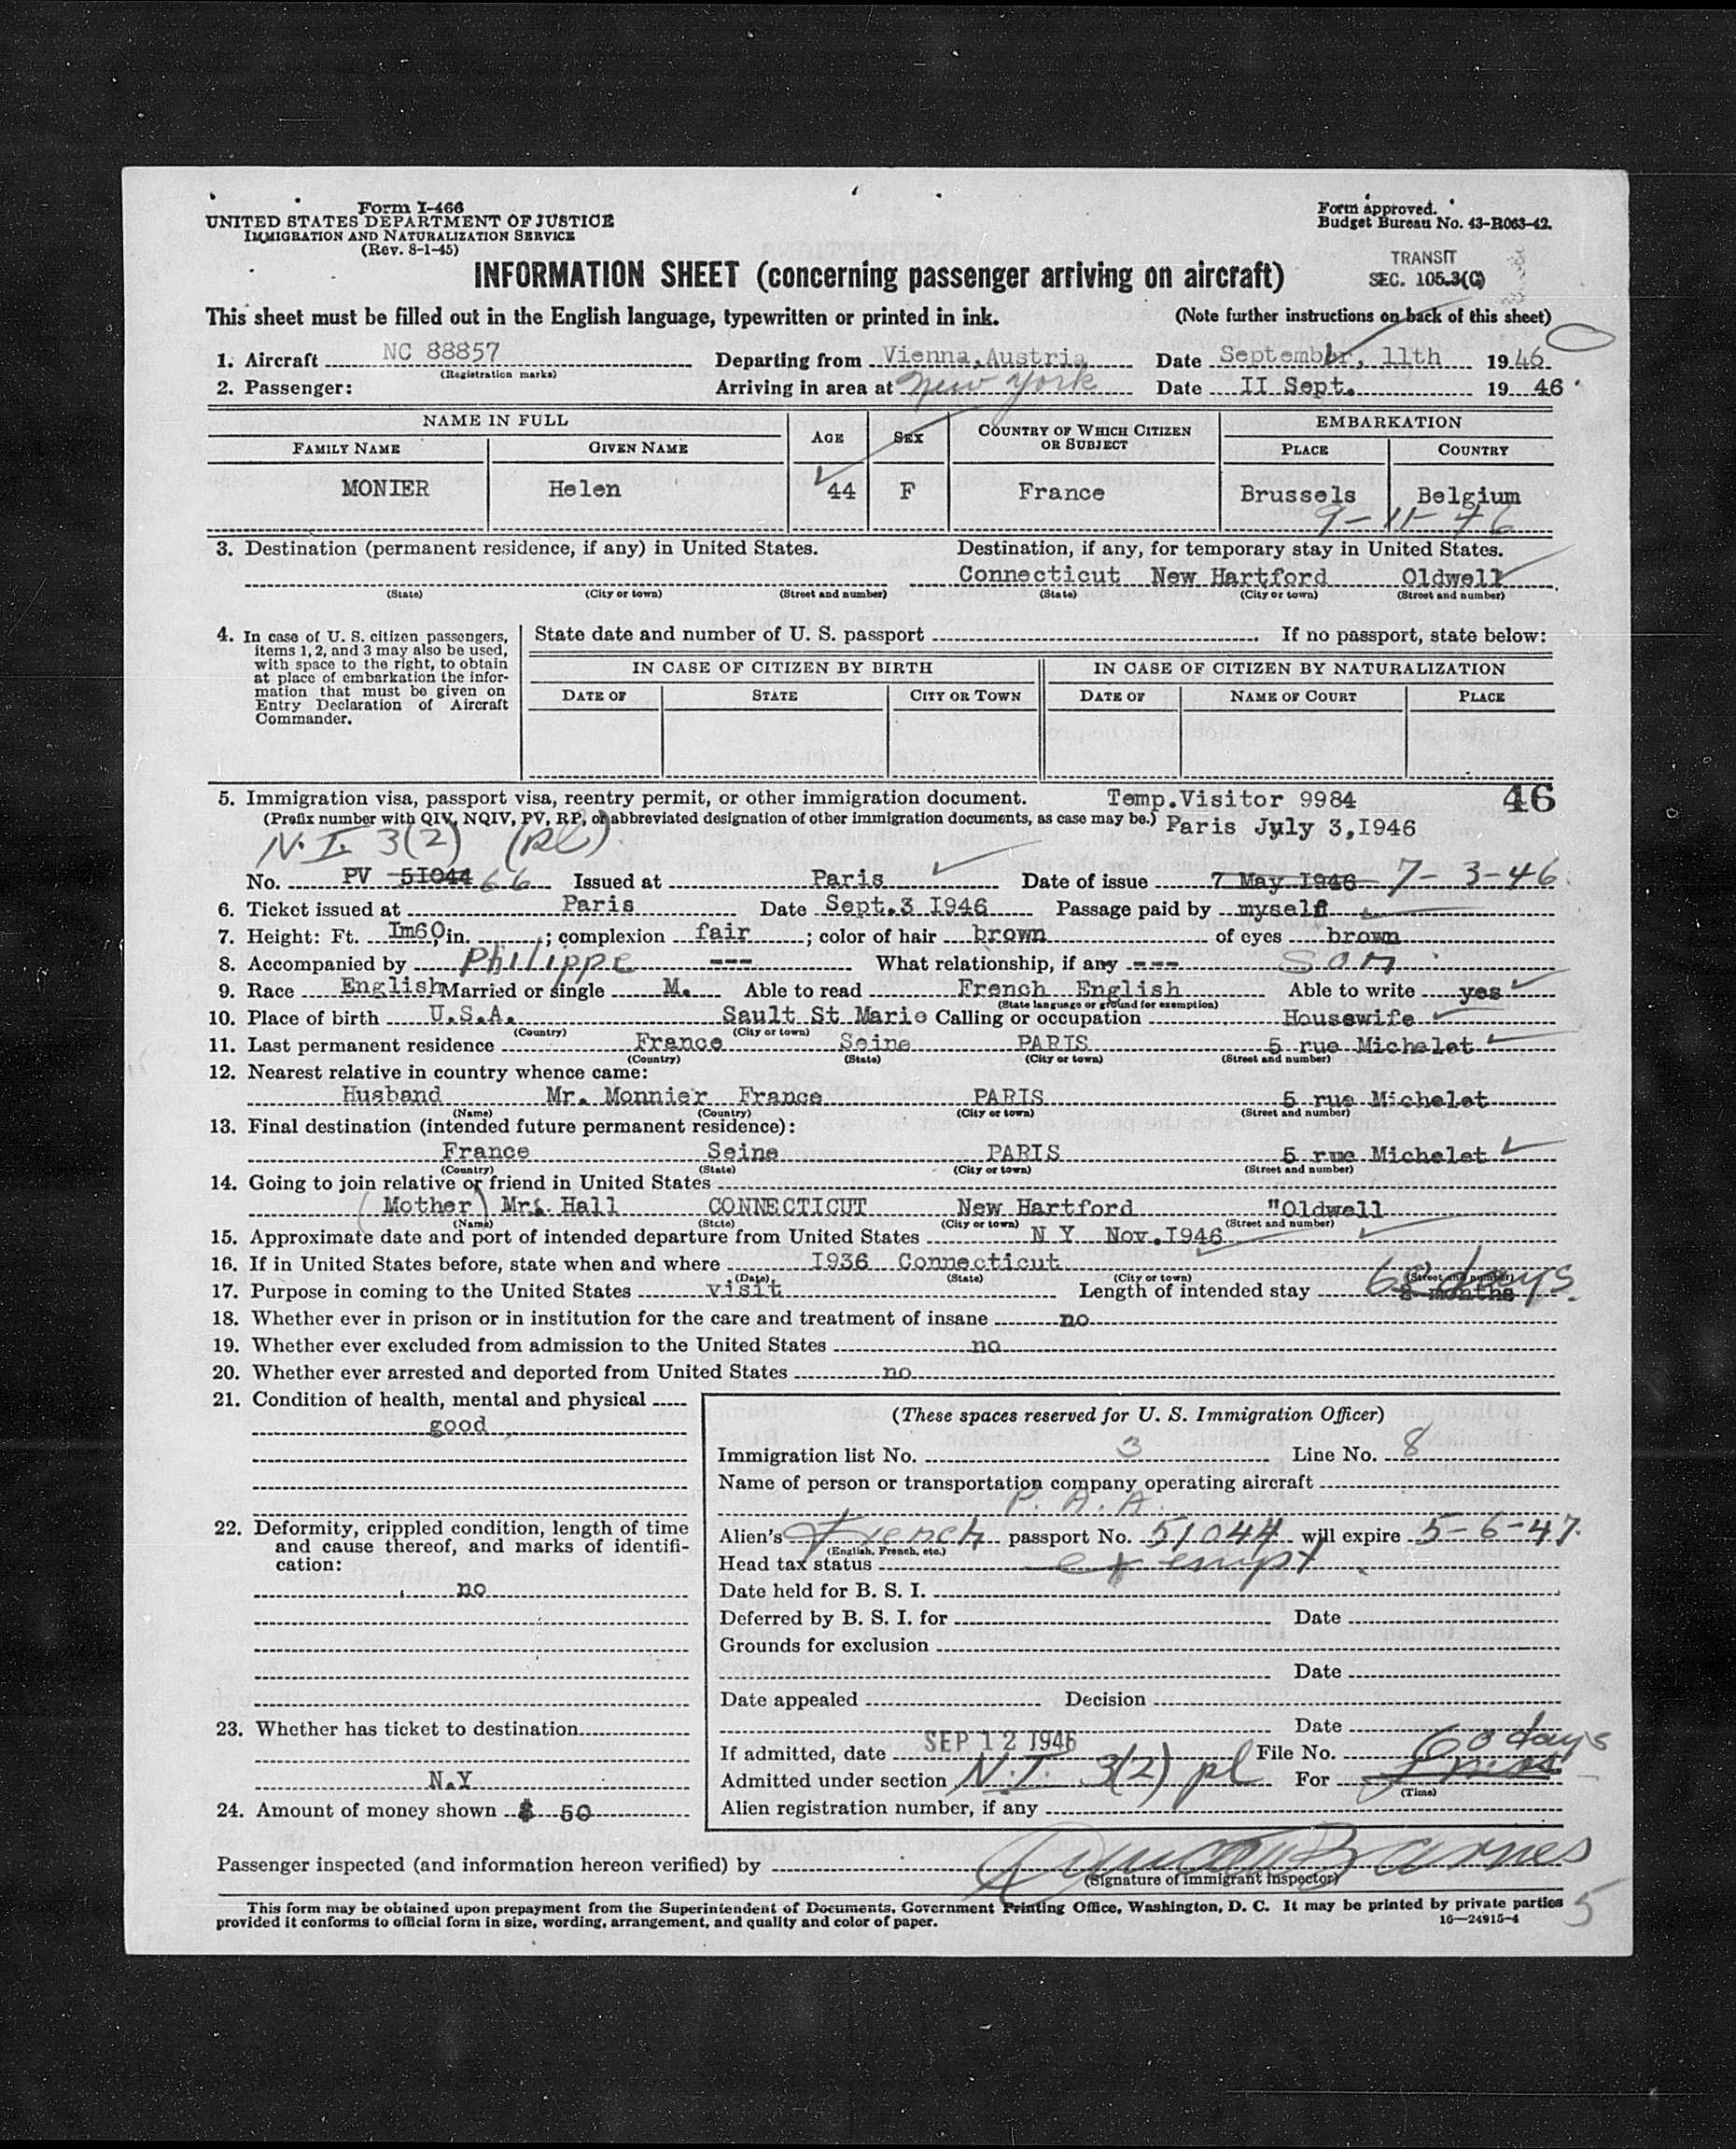 Form I-466
UNITED STATES DEPARTMENT OF JUSTICE
IMMIGRATION AND NATURALIZATION SERVICE
(Rev. 8-1-45)
Form approved.
Budget Bureau No. 43-R063-42.
TRANSIT
SEC. 105.3(C)
INFORMATION SHEET (concerning passenger arriving on aircraft)
This sheet must be filled out in the English language, typewritten or printed in ink. (Note further instructions on back of this sheet)
1. Aircraft NC 88857 Departing from Vienna,Austria Date September, 11th 1946
(Registration marks)
2. Passenger: Arriving in area at New York Date II Sept. 19 46
NAME IN FULL AGE SEX COUNTRY OF WHICH CITIZEN OR SUBJECT EMBARKATION
FAMILY NAME GIVEN NAME PLACE COUNTRY
MONIER Helen 44 F France Brussels Belgium
9-11-46
3. Destination (permanent residence, if any) in United States. Destination, if any, for temporary stay in United States.
Connecticut New Hartford Oldwell
(State) (City or town) (Street and number) (State) (City or town) (Street and number)
4. In case of U. S. citizen passengers, items 1, 2, and 3 may also be used, with space to the right, to obtain at place of embarkation the information that must be given on Entry Declaration of Aircraft Commander.
State date and number of U. S. passport If no passport, state below:
IN CASE OF CITIZEN BY BIRTH IN CASE OF CITIZEN BY NATURALIZATION
DATE OF STATE CITY OR TOWN DATE OF NAME OF COURT PLACE
5. Immigration visa, passport visa, reentry permit, or other immigration document. Temp.Visitor 9984 46
(Prefix number with QIV, NQIV, PV, RP, or abbreviated designation of other immigration documents, as case may be.) Paris July 3,I946
N.I. 3(2) (pl)
No. PV 5I044 66 Issued at Paris Date of issue 7 May I946 7-3-46
6. Ticket issued at Paris Date Sept.3 I946 Passage paid by myself
7. Height: Ft. Im60 in. ; complexion fair ; color of hair brown of eyes brown
8. Accompanied by Philippe --- What relationship, if any --- son
9. Race English Married or single M. Able to read French English Able to write yes
(State language or ground for exemption)
10. Place of birth U.S.A. Sault St Marie Calling or occupation Housewife
(Country) (City or town)
11. Last permanent residence France Seine PARIS 5 rue Michelet
(Country) (State) (City or town) (Street and number)
12. Nearest relative in country whence came:
Husband Mr. Monnier France PARIS 5 rue Michelet
(Name) (Country) (City or town) (Street and number)
13. Final destination (intended future permanent residence):
France Seine PARIS 5 rue Michelet
(Country) (State) (City or town) (Street and number)
14. Going to join relative or friend in United States
(Mother) Mrs. Hall CONNECTICUT New Hartford "Oldwell
(Name) (State) (City or town) (Street and number)
15. Approximate date and port of intended departure from United States N Y Nov.I946
16. If in United States before, state when and where I936 Connecticut
(Date) (State) (City or town) (Street and number)
17. Purpose in coming to the United States visit Length of intended stay 2 months 60 days.
18. Whether ever in prison or in institution for the care and treatment of insane no
19. Whether ever excluded from admission to the United States no
20. Whether ever arrested and deported from United States no
21. Condition of health, mental and physical
good
22. Deformity, crippled condition, length of time and cause thereof, and marks of identification:
no
23. Whether has ticket to destination
N.Y
24. Amount of money shown $ 50
(These spaces reserved for U. S. Immigration Officer)
Immigration list No. 3 Line No. 8
Name of person or transportation company operating aircraft
P. A. A.
Alien's French passport No. 51044 will expire 5-6-47.
(English, French, etc.)
Head tax status exempt
Date held for B. S. I.
Deferred by B. S. I. for Date
Grounds for exclusion
Date
Date appealed Decision
Date
If admitted, date SEP 12 1946 File No.
60 days
Admitted under section N.I. 3(2) pl For
(Time)
Alien registration number, if any
Passenger inspected (and information hereon verified) by Barnes
(Signature of immigrant inspector)
This form may be obtained upon prepayment from the Superintendent of Documents, Government Printing Office, Washington, D. C. It may be printed by private parties
provided it conforms to official form in size, wording, arrangement, and quality and color of paper. 16—24915-4
5